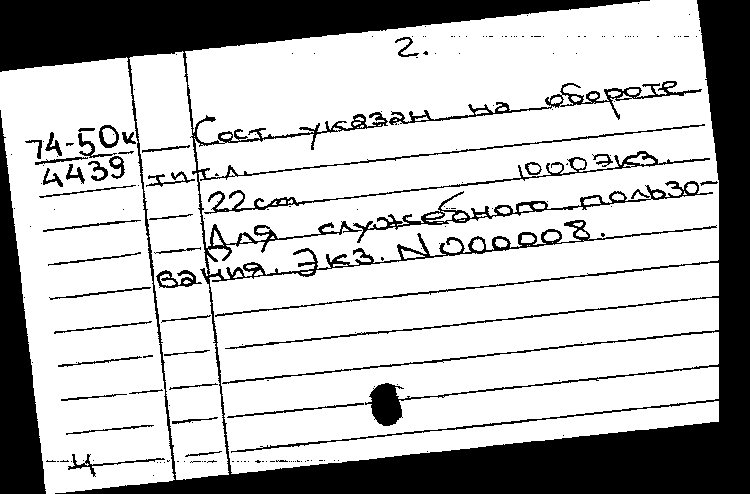 2.
74-50к
4439
Сост. указан на обороте
тит.л.
22 cm 1000экз.
Для служебного пользо-
вания. Экз. N000008.
4